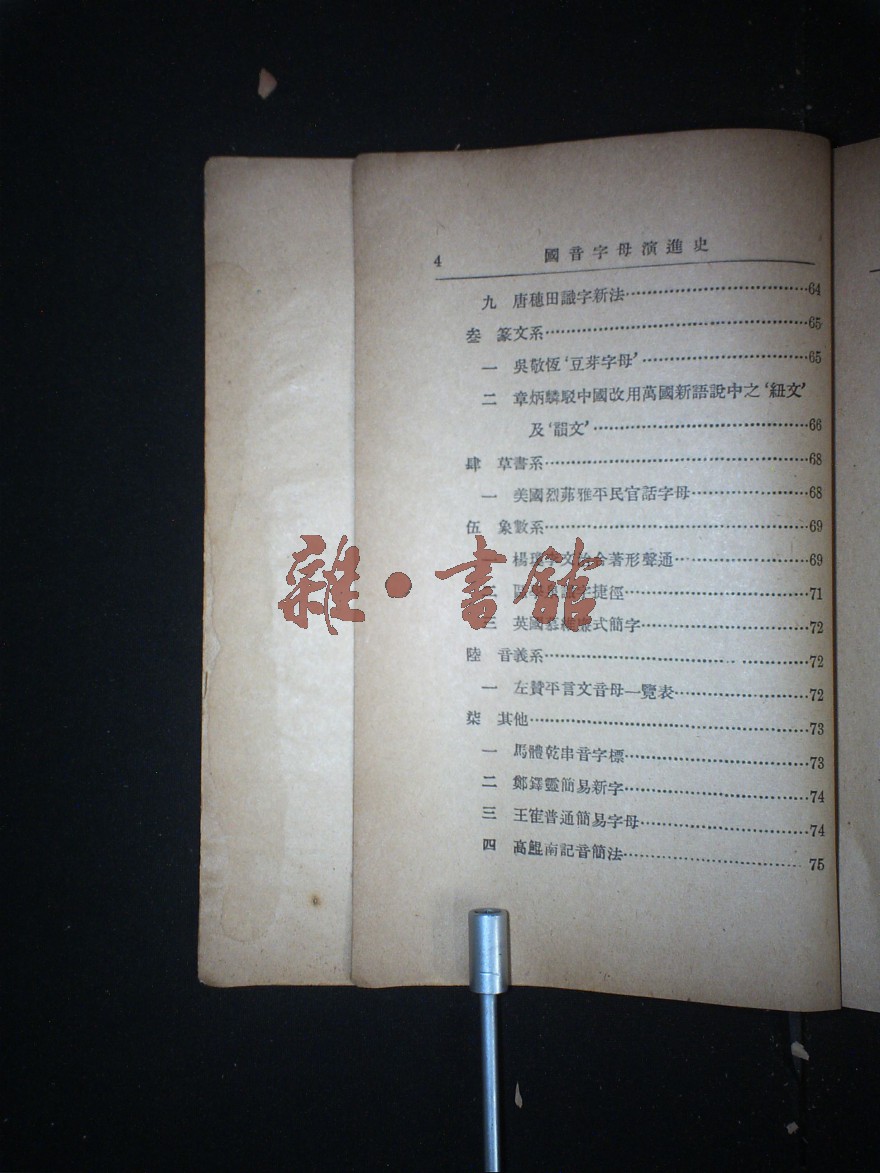 4 國音字母演進史
九 唐穗田識字新法 64
叁 篆文系 65
一 吳敬恆‘豆芽字母’ 65
二 章炳麟駁中國改用萬國新語說中之‘紐文’
及‘韻文’ 66
肆 草書系 68
一 美國烈茀雅平民官話字母 68
伍 象數系 69
一 楊瓊李文治合著形聲通 69
捷徑 71
三 英國慕 式簡字 72
陸 音義系 72
一 左贊平言文音母一覽表 72
柒 其他 73
一 馬體乾串音字標 73
二 鄭鐸靈簡易新字 74
三 王崔普通簡易字母 74
四 高鯤南記音簡法 75
雜·書館